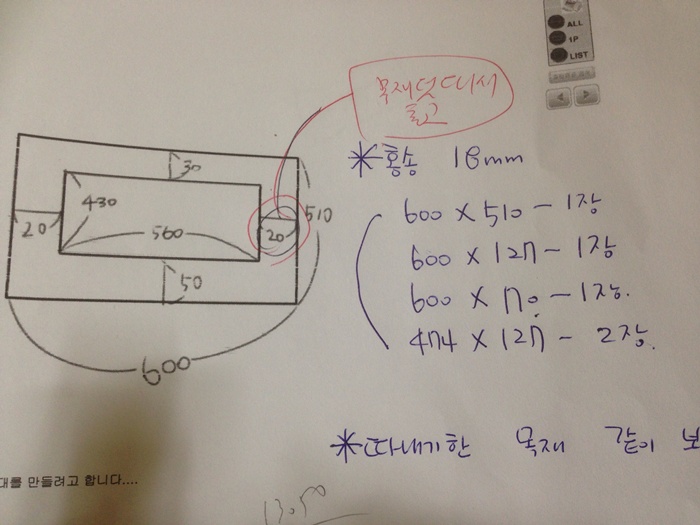 ALL
1P
LIST
목재덧대서
출고
*홍송 18mm
30
430
510
20
560
20
50
600
600 X 510 - 1장
600 X 127 - 1장
600 X 70 - 1장.
474 X 127 - 2장.
*따내기한 목재 같이 보
대를 만들려고 합니다....
13.50